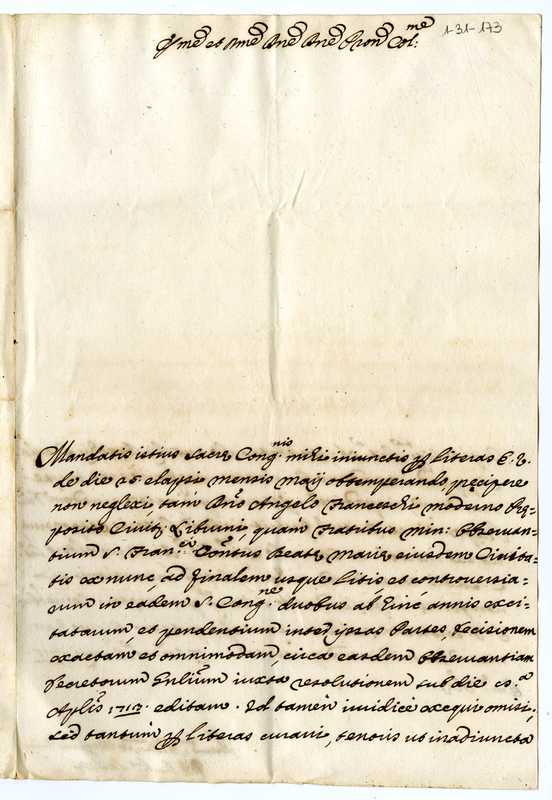 1-31-173
Mandatis istius Sacræ Cong.nis mihi iniunctis p literas E. V.
de die 26 elapsi mensis Maij obtemperando, præcipere
non neglexi, tam Dno Angelo Franceschi moderno Præ-
posito Civitis Liburni, quam Fratribus Min: Observan-
tium S. Fran.ci Contus Beatæ Mariæ eiusdem Civita-
tis ex nunc, ad finalem usque litis et controversia-
rum in eadem S. Cong.ne duobus ab hinc annis exci-
tatarum, et pendentium inter ipsas Partes, decisionem
exactam, et omnimodam, circa easdem Observantiam
Decretorum iuxta resolutionem sub die
Aplis 1713. editam. Id tamen iuridicè exequi omisi;
sed tantum p literas curavi, tenoris ut in adiuncta